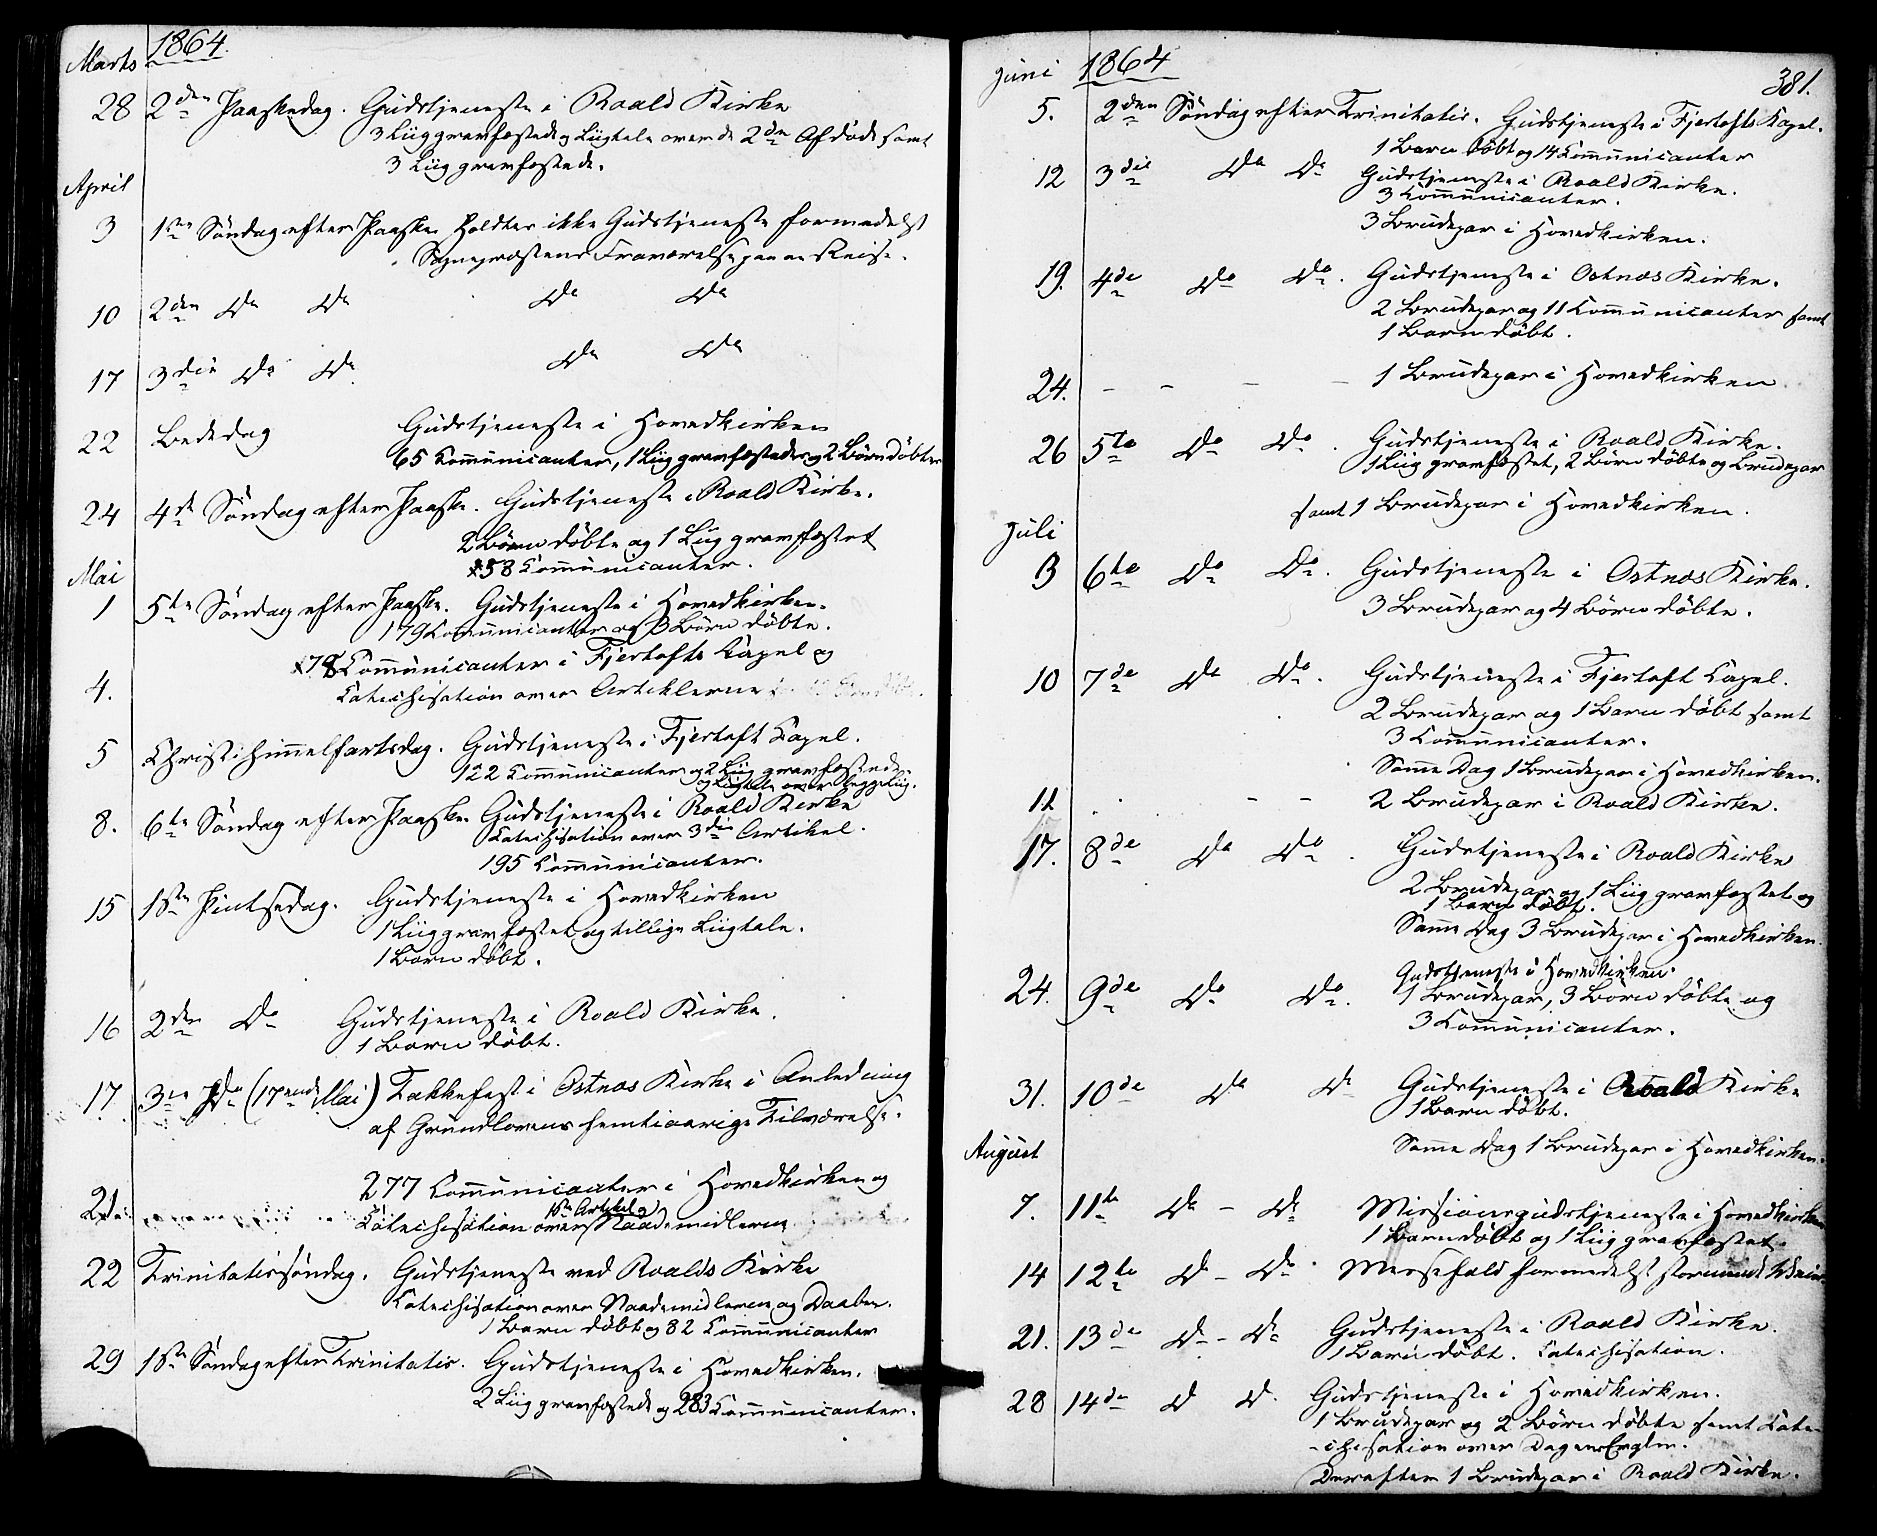 Marts 1864.
28 2den Paaskedag. Gudstjeneste i Roald Kirke
3 Liig gravfæstede og Liigtale over de 2de Afdøde samt
3 Liig gravfæstede.
April
3 1ste Søndag efter Paaske. Holdtes ikke Gudstjeneste formedelst
Sognepræstens Fraværelse paa en Reise.
10 2den Do Do Do Do
17 3die Do Do Do Do
22 Bededag Gudstjeneste i Hovedkirken
65 Communicanter, 1 Liig gravfæstedes og 2 Børn døbtes
24 4de Søndag efter Paaske. Gudstjeneste i Roald Kirke.
2 Børn døbte og 1 Liig gravfæstet
58 Communicanter.
Mai
1 5te Søndag efter Paaske. Gudstjeneste i Hovedkirken.
179 Communicanter og 3 Børn døbte.
4. 178 Communicanter i Fjertofts Capel og
Catechisation over Artiklerne
5 Christi himmelfartsdag. Gudstjeneste i Fjertoft Capel.
122 Communicanter og 2 Liig gravfæstede
og Liigtale over begge Liig.
8. 6te Søndag efter Paaske. Gudstjeneste i Roald Kirke
Catechisation over 3die Artikel.
195 Communicanter.
15 1ste Pintsedag. Gudstjeneste i Hovedkirken
1 Liig gravfæstet og tillige Liigtale.
1 Barn døbt.
16 2den Do Gudstjeneste i Roald Kirke.
1 Barn døbt.
17. 3die Do (17ende Mai) Takkefest i Ostnæs Kirke i Anledning
af Grundlovens femtiaarige Tilværelse.
21 277 Communicanter i Hovedkirken og
1ste Artikel og
Catechisation over Naademidlerne
22 Trinitatissøndag. Gudstjeneste ved Roalds Kirke
Catechisation over Naademidlerne og Daaben.
1 Barn døbt og 82 Communicanter
29 1ste Søndag efter Trinitatis. Gudstjeneste i Hovedkirken.
2 Liig gravfæstede og 283 Communicanter.
Juni 1864 381.
5. 2den Søndag efter Trinitatis. Gudstjeneste i Fjertofts Capel.
1 Barn døbt og 14 Communicanter
12 3die Do Do Gudstjeneste i Roald Kirke.
3 Communicanter.
3 Brudepar i Hovedkirken.
19. 4de Do Do. Gudstjeneste i Ostnæs Kirke.
2 Brudepar og 11 Communicanter samt
1 Barn døbt.
24. - - - - 1 Brudepar i Hovedkirken
26 5te Do Do. Gudstjeneste i Roald Kirke.
1 Liig gravfæstet, 2 Børn døbte og Brudepar
samt 1 Brudepar i Hovedkirken.
Juli
3 6te Do Do. Gudstjeneste i Ostnæs Kirke.
3 Brudepar og 4 Børn døbte.
10 7de Do Do. Gudstjeneste i Fjertoft Capel.
2 Brudepar og 1 Barn døbt samt
3 Communicanter.
Samme Dag 1 Brudepar i Hovedkirken.
11 - - 2 Brudepar i Roald Kirke.
17. 8de Do Do. Gudstjeneste i Roald Kirke
2 Brudepar og 1 Liig gravfæstet og
1 Barn døbt.
Samme Dag 3 Brudepar i Hovedkirken.
24. 9de Do Do. Gudstjeneste i Hovedkirken.
1 Brudepar, 3 Børn døbte og
3 Communicanter.
31. 10de Do Do Gudstjeneste i Roald Kirke
1 Barn døbt.
Samme Dag 1 Brudepar i Hovedkirken.
August
7. 11te Do - Do Missionsgudstjeneste i Hovedkirken
1 Barn døbt og 1 Liig gravfæstet.
14 12te Do - Do. Messefald formedelst stormende
21. 13de Do - Do Gudstjeneste i Roald Kirke.
1 Barn døbt. Catechisation.
28 14de Do Do. Gudstjeneste i Hovedkirken.
1 Brudepar og 2 Børn døbte samt Cate-
-chisation over Dagens Evglm.
Derefter 1 Brudepar i Roald Kirke.